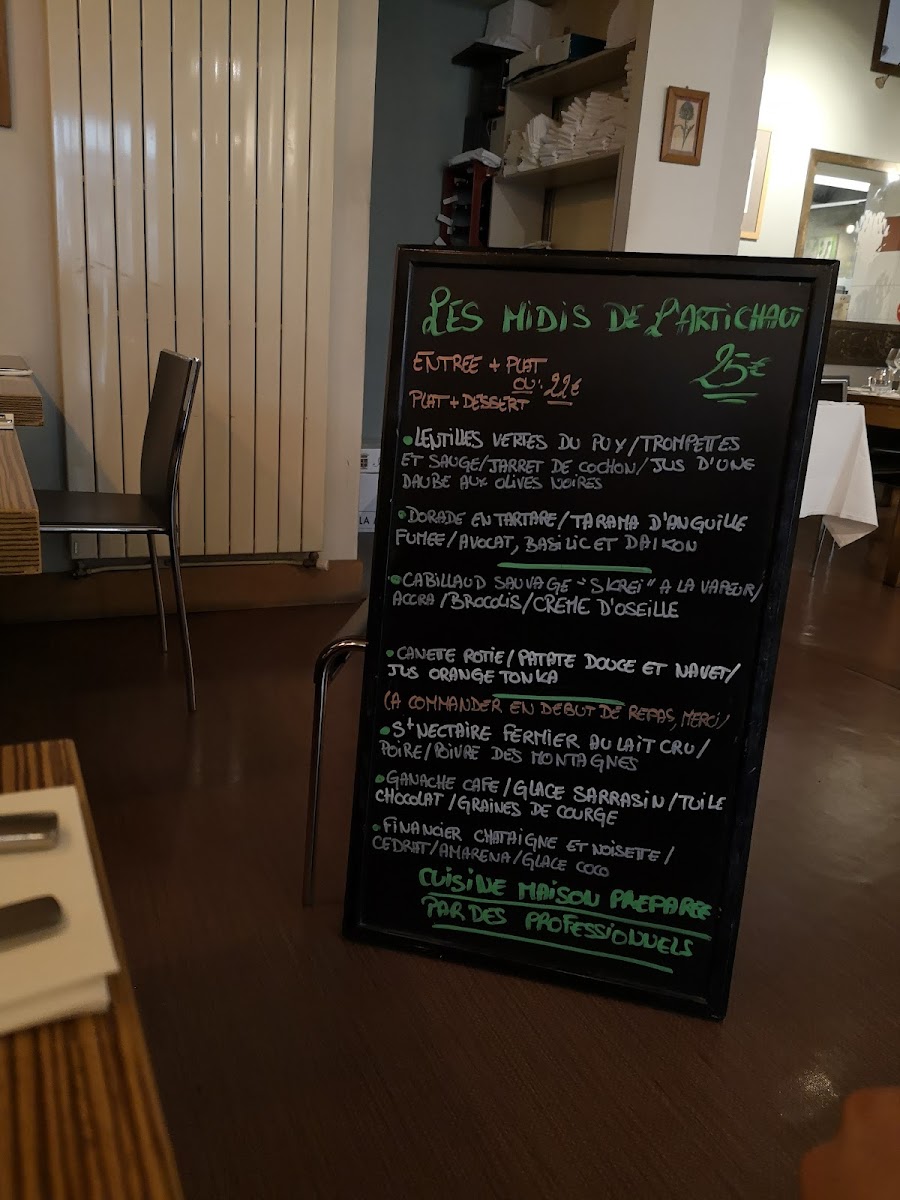 LES MIDIS DE L'ARTICHAUT
25€
ENTREE + PLAT
OU: 22€
PLAT + DESSERT
• LENTILLES VERTES DU PUY / TROMPETTES
ET SAUGE / JARRET DE COCHON / JUS D'UNE
DAUBE AUX OLIVES NOIRES
• DORADE EN TARTARE / TARAMA D'ANGUILLE
FUMEE / AVOCAT, BASILIC ET DAIKON
• CABILLAUD SAUVAGE "SKREI" A LA VAPEUR /
ACCRA / BROCOLIS / CREME D'OSEILLE
• CANETE ROTIE / PATATE DOUCE ET NAVET /
JUS ORANGE TONKA
(A COMMANDER EN DEBUT DE REPAS, MERCI)
• St NECTAIRE FERMIER AU LAIT CRU /
POIRE / POIVRE DES MONTAGNES
• GANACHE CAFE / GLACE SARRASIN / TUILE
CHOCOLAT / GRAINES DE COURGE
• FINANCIER CHATAIGNE ET NOISETTE /
CEDRAT / AMARENA / GLACE COCO
CUISINE MAISON PREPAREE
PAR DES PROFESSIONNELS